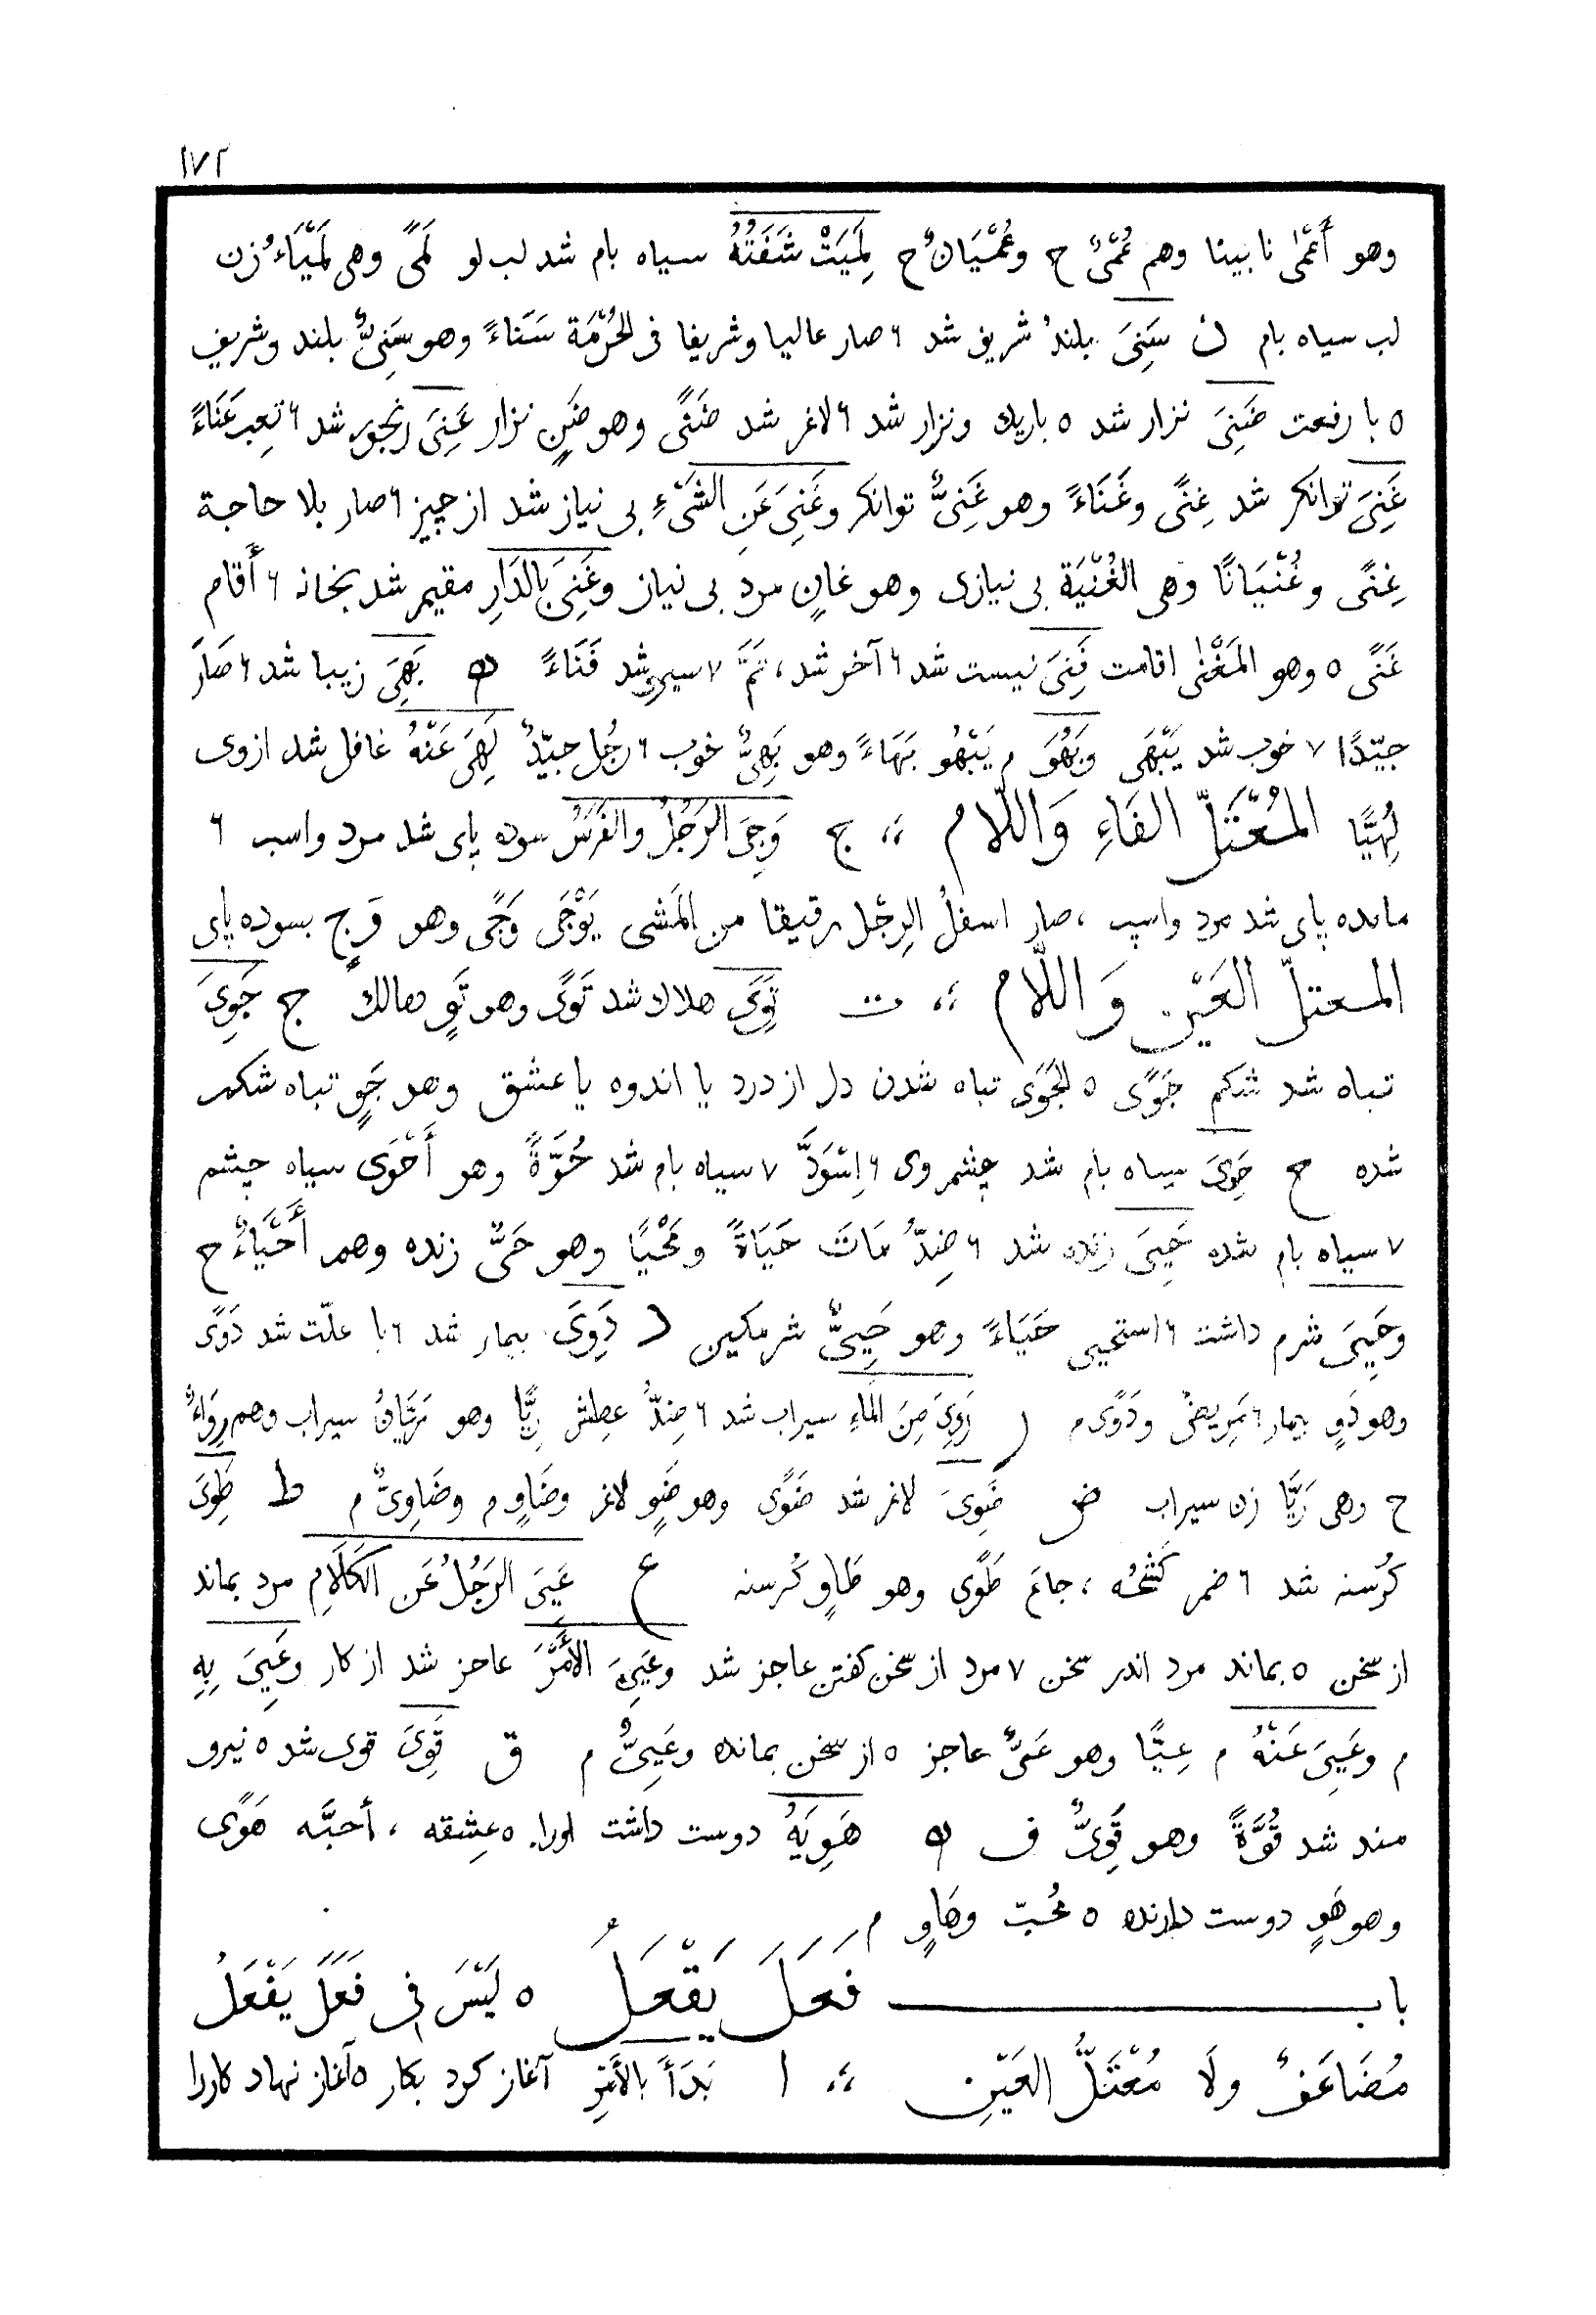 ١٧٢
وهو أَعْمَىٰ نابينا وهم عُمْىٌ ح وعُمْيَانٌ ح لَمِيَتْ شَفَتُهُ سياه بام شد لب لو لَمًى وهى لَمْيَاءُ زن
لب سياه بام ن سَنِىَ بلند شريف شد ٦ صار عاليا وشريفا فى الحُرْمَة سَنَاءً وهو سَنِىٌّ بلند وشريف
٥ با رفعت ضَنِىَ نزار شد ٥ باريك ونزار شد ٦ لاغر شد ضَنًى وهو ضَنٍ نزار عَنِىَ رنجور شد ٦ تعِب عَنَاءً
غَنِىَ توانكر شد غِنًى وغَنَاءً وهو غَنِىٌّ توانكر وغَنِىَ عَنِ الشَّىْءِ بى نياز شد از چيز ٦ صار بلا حاجة
غِنًى وغُنْيَانًا وهى الغُنْيَة بى نيازى وهو غانٍ مرد بى نياز وغَنِىَ بالدَارِ مقيم شد بخانه ٦ أَقام
غَنًى ٥ وهو المَغْنٰى اقامت فَنِىَ نيست شد ٦ آخر شد، تَمَّ ٧ سپرى شد فَنَاءً ه بَهِىَ زيبا شد ٦ صَارَ
جيّدًا ٧ خوب شد يَبْهَى وبَهُوَ م يَبْهُو بَهَاءً وهو بَهِىٌّ خوب ٦ رجُل جيّدٌ لَهِىَ عَنْهُ غافل شد ازوى
لُهِيًّا المُعْتَلّ الفَاءِ وَاللّام ؞ ج وَجِىَ الرَجُلُ والفَرَسُ سوده پاى شد مرد واسب ٦
مانده پاى شد مرد واسپ ، صار اسفلُ الرِجْل رقيقا من المَشى يَوْجَى وَجًى وهو وَجٍ بسوده پاى
المعتلّ العَيْن وَاللّام ؞ ت تَوِىَ هلاك شد تَوًى وهو تَوٍ هالك ج جَوِىَ
تباه شد شكم جَوًى ٥ الجَوَى تباه شدن دل از درد يا اندوه يا عشق وهو جَوٍ تباه شكم
شده ح حَوِىَ سياه بام شد چشم وى ٦ اِسْوَدَّ ٧ سياه بام شد حُوَّةً وهو أَحْوَى سياه چشم
٧ سياه بام شده حَيِىَ زنده شد ٦ ضِدُّ مَاتَ حَيَاةً ومَحْيًا وهو حَىٌّ زنده وهم أَحْيَاءٌ ح
وحَيِىَ شرم داشت ٦ استحيى حَيَاءً وهو حَيِىٌّ شرمكين د دَوِىَ بيمار شد ٦ با علّت شد دَوًى
وهو دَوٍ بيمار ٦ مَرِيضٌ ودَوًى م ر رَوِىَ مِنَ المَاءِ سيراب شد ٦ ضِدُّ عطِش رِيًّا وهو رَيَّانُ سيراب وهم رِوَاءٌ
ح وهى رَيَّا زن سيراب ض ضَوِىَ لاغر شد ضَوًى وهو ضَوٍ لاغر وضَاوٍ م وضَاوِىٌّ م ط طَوِىَ
كُرسنه شد ٦ ضمر كَشْحُه ، جاعَ طَوًى وهو طَاوٍ كُرسنه ع عَيِىَ الرَجُلُ عَن الكَلَامِ مرد بماند
از سخن ٥ بماند مرد اندر سخن ٧ مرد از سخن كفتن عاجز شد وعَيِىَ الأَمْرَ عاجز شد از كار وعَيِىَ بِهِ
م وعَيِىَ عَنْهُ م عِيًّا وهو عَىٌّ عاجز ٥ از سخن بمانده وعَيِىٌّ م ق قَوِىَ قوى شد ٥ نيرو
مند شد قُوَّةً وهو قَوِىٌّ ف ه هَوِيَهُ دوست داشت اورا ٥ عِشقه ، أحبَّه هَوًى
وهو هَوٍ دوست دارنده ٥ مُحبّ وهَاوٍ م
باب فَعَلَ يَفْعَلُ ٥ لَيْسَ فِى فَعَلَ يَفْعَلُ
مُضَاعَفٌ ولَا مُعْتَلُّ العَيْنِ ؞ ا بَدَأَ بالأَمْرِ آغاز كرد بكار ٥ آغاز نهاد كاررا